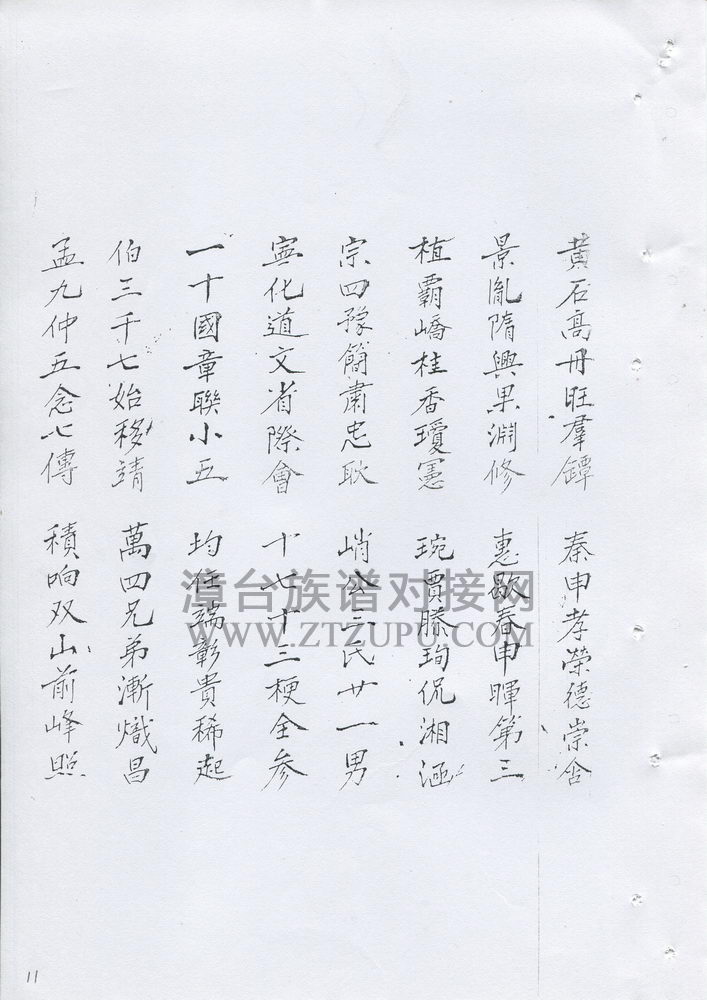 黄石高冊旺羣鐔 秦申孝榮德崇含
景胤隋興果淵修 惠歇春申暉第三
植霸嶠桂香瓊憲 琬賈滕珣侃湘涵
宗四豫簡肅忠耿 峭公三氏廿一男
寧化道文省際會 十七十三梗全參
一十國章聯小五 均住端彰貴稀起
伯三千七始移靖 萬四兄弟漸熾昌
孟九仲五念七傳 積响双山前峰照
漳台族谱对接网
WWW.ZTZUPU.COM
11